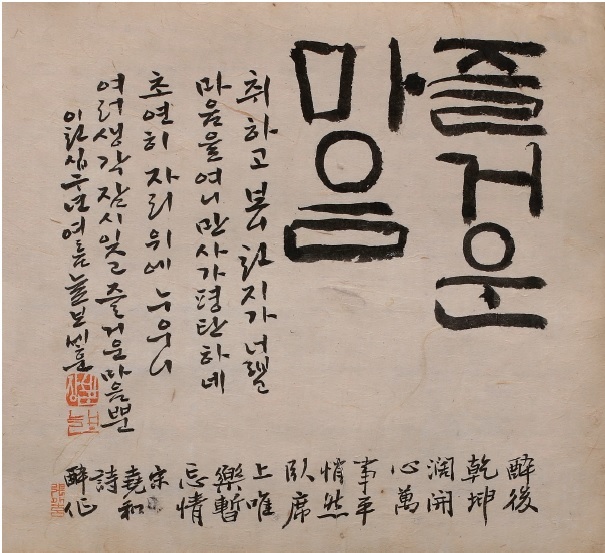 즐거운
마음
취하고 천지가
마음을 여니 만사가 평탄하네
초연히 자리 위에 누우니
여러생각 잠시 잊고 즐거운 마음뿐
이천십구년 여름 늘보 세훈
醉後
乾坤
濶開
心萬
事平
悄然
臥席
上唯
樂暫
忘情
宋
堯和
詩
醉作